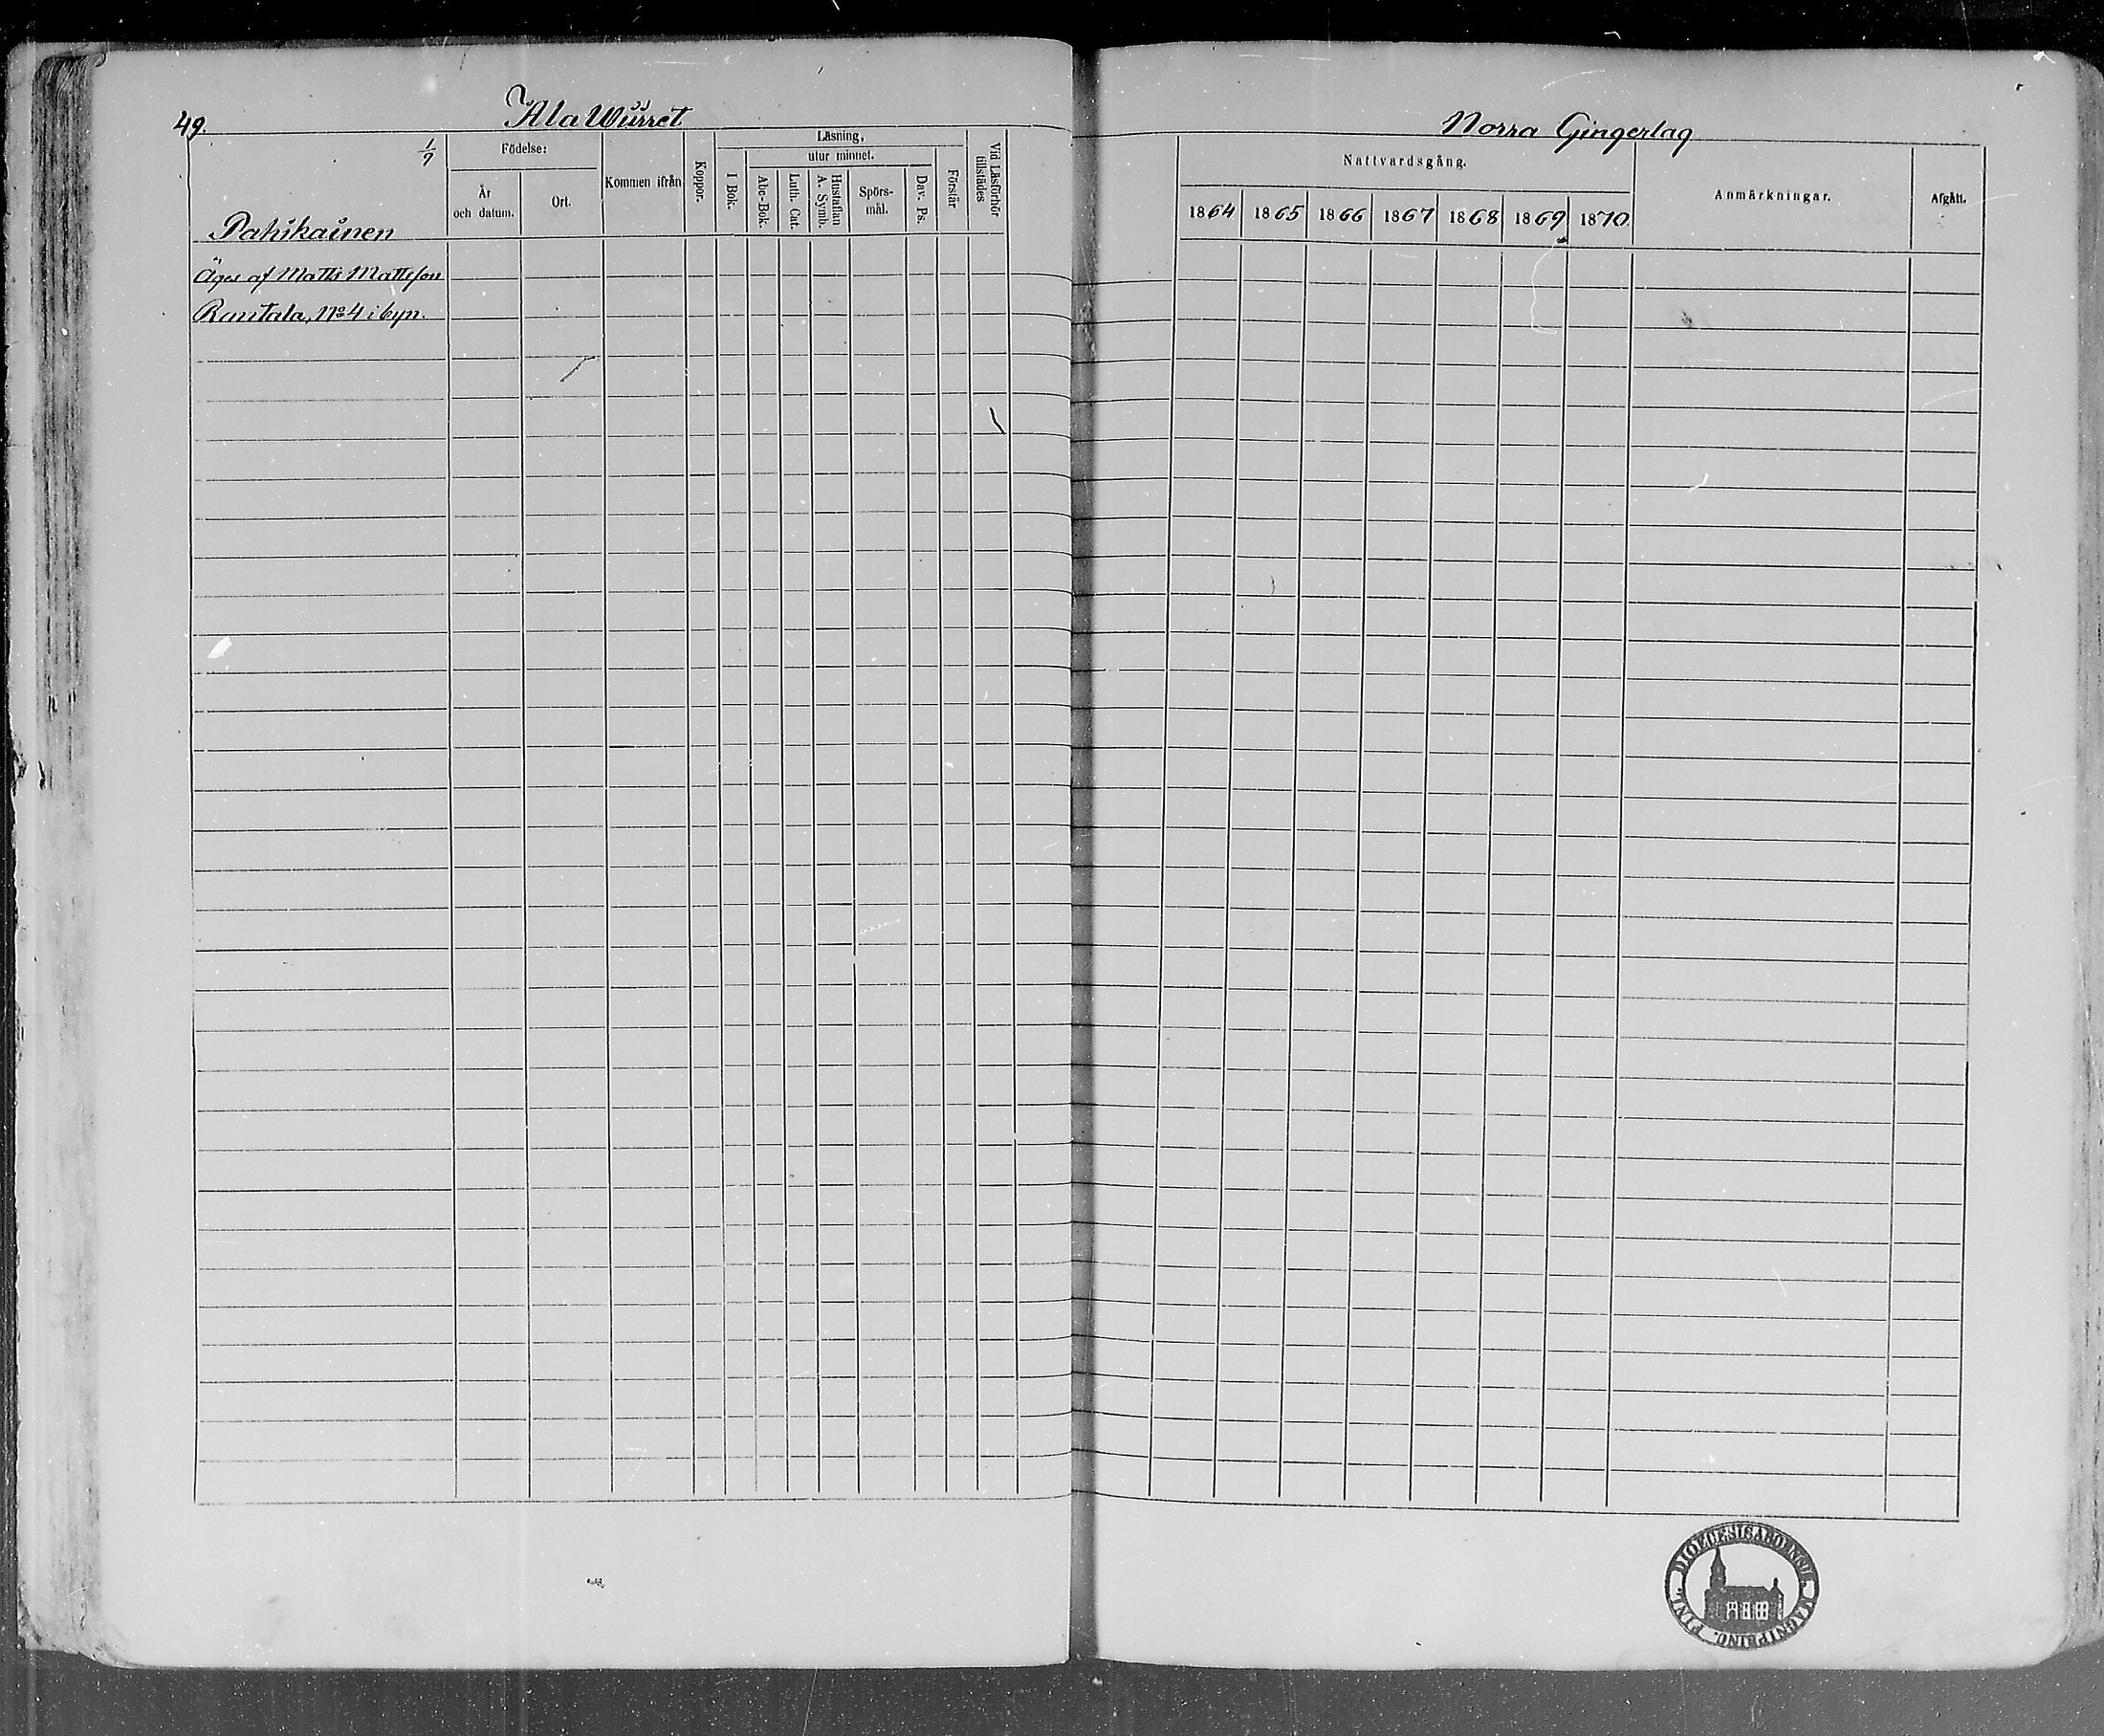 49.
Ala Wirret
Norra Gingerlag
1/7
Pahikainen
Födelse:
År
och datum.
Ort.
Kommen ifrån
Koppor.
Läsning,
utur minnet.
I Bok.
Abc-Bok.
Luth. Cat.
Hustaflan
A. Symb.
Spörs-
mål.
Dav. Ps.
Förstår
Vid Läsförhör
tillstädes
Nattvardsgång.
1864 1865 1866 1867 1868 1869 1870.
Anmärkningar.
Afgått.
Äges af Matts Mattsson
Rantala, No 4 i byn.